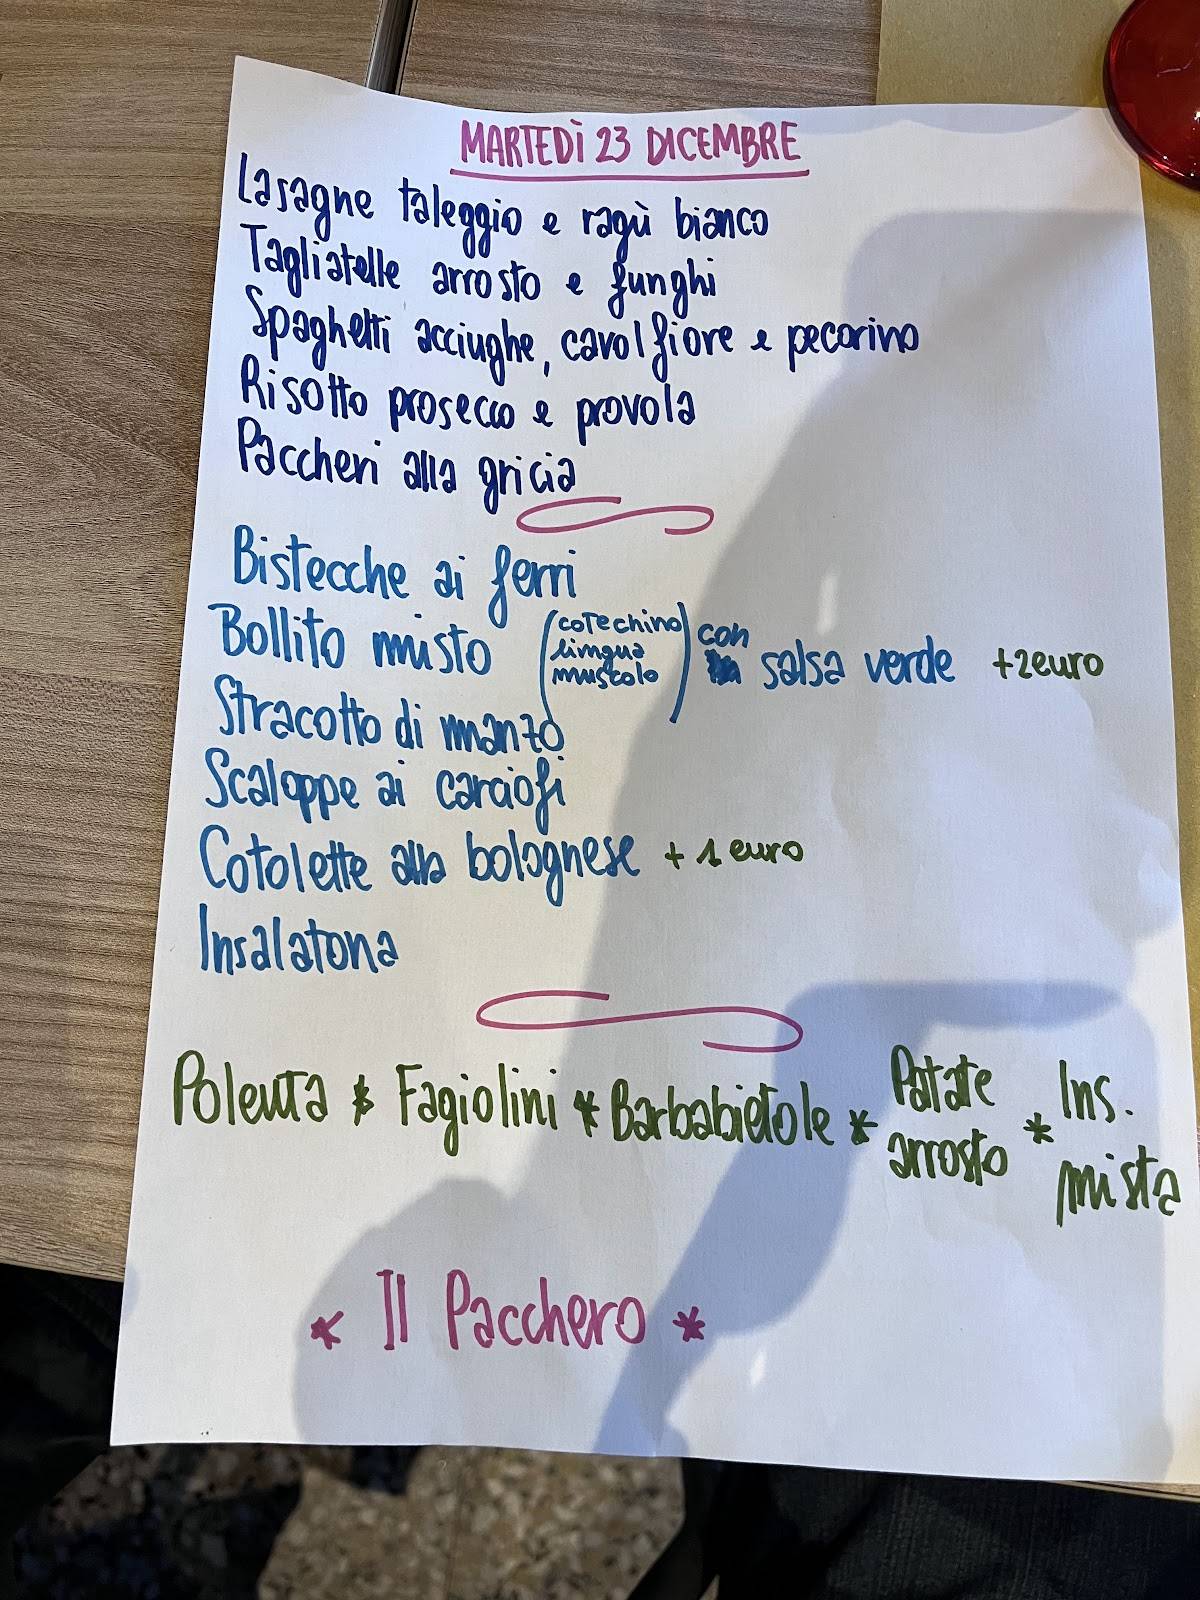 MARTEDÌ 23 DICEMBRE
Lasagne taleggio e ragù bianco
Tagliatelle arrosto e funghi
Spaghetti acciughe, cavolfiore e pecorino
Risotto prosecco e provola
Paccheri alla gricia
Bistecche ai ferri
Bollito misto (cotechino lingua muscolo) con salsa verde +2euro
Stracotto di manzo
Scaloppe ai carciofi
Cotolette alla bolognese + 1 euro
Insalatona
Polenta * Fagiolini * Barbabietole * Patate arrosto * Ins. mista
* Il Pacchero *